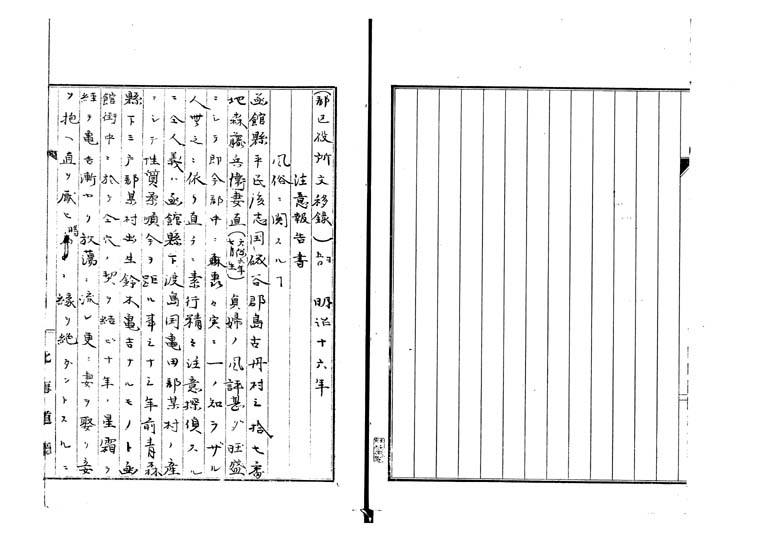 (郡區役所文移録) 明治十六年
注意報告書
風俗ニ関スルヿ
函館縣平民後志国磯谷郡島古丹村三拾七番
地森藤兵衛妻直(七月生)貞婦ノ風評甚タ旺盛
ニシテ即今郡中ニ 実ニ一ノ知ラザル
人無之ニ依リ直チニ素行精々注意探偵スル
ニ仝人義ハ函館縣下渡島国亀田郡某村ノ産
ニシテ性質柔順今ヲ距ル事三十三年前青森
縣下三戸郡某村出生鈴木亀吉ナルモノト函
館街中ニ於テ仝穴ノ契ヲ結ビ十年ノ星霜ヲ
経ヲ亀吉漸ヤク放蕩ニ流レ更ニ妻ヲ娶リ妾
ヲ抱ヘ直ヲ厭ヒ時 ニ縁ヲ絶タントスルニ
北海道